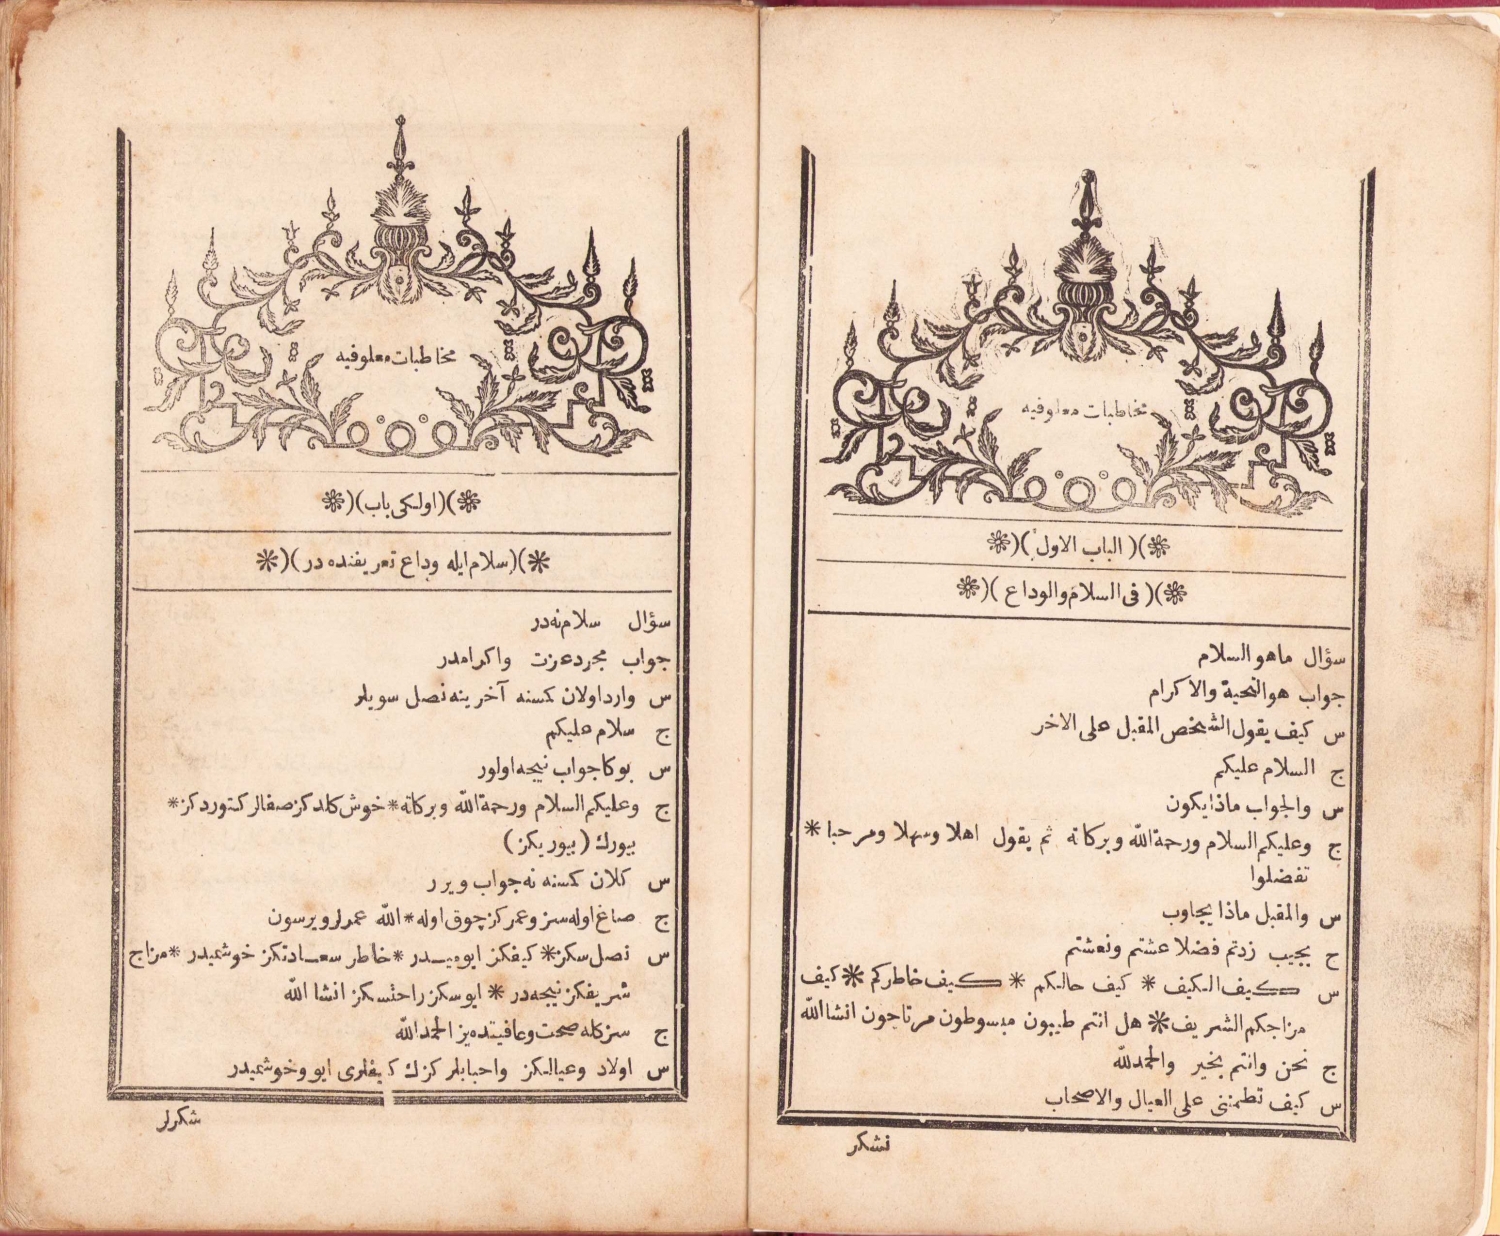 مخاطبات معلوفيه
❋)( الباب الاول )(❋
❋)( فى السلام والوداع )(❋
سؤال ماهو السلام
جواب هو التحية والاكرام
س كيف يقول الشخص المقبل على الاخر
ج السلام عليكم
س والجواب ماذا يكون
ج وعليكم السلام ورحمة الله وبركاته ثم يقول اهلا وسهلا ومرحبا *
تفضلوا
س والمقبل ماذا يجاوب
ح يجيب زدتم فضلا عشتم ونعشتم
س كيف الكيف * كيف حالكم * كيف خاطركم * كيف
مزاجكم الشريف * هل انتم طيبون مبسوطون مرتاحون انشاالله
ج نحن وانتم بخير والحمدلله
س كيف تطمننى على العيال والاصحاب
نشكر
مخاطبات معلوفيه
❋)(اولكى باب)(❋
❋)(سلام ايله وداع تعريفنده در)(❋
سؤال سلام نه در
جواب مجرد عزت واكرامدر
س وارد اولان كسنه آخرينه نصل سويلر
ج سلام عليكم
س بوكا جواب نيجه اولور
ج وعليكم السلام ورحمة الله وبركاته * خوش كلدكز صفالر كتوردكز *
بيورك (بيوريكز)
س كلان كسنه نه جواب ويرر
ج صاغ اوله سز وعمركز چوق اوله * الله عمرلر ويرسون
س نصل سكز * كيفكز ايوميدر * خاطر سعادتكز خوشميدر * مزاج
شريفكز نيجه در * ايوسكز راحتسكز انشا الله
ج سزكله صحت وعافيتده يز الحمدالله
س اولاد وعيالكز واحبابلركزك كيفلرى ايو وخوشميدر
شكرلر